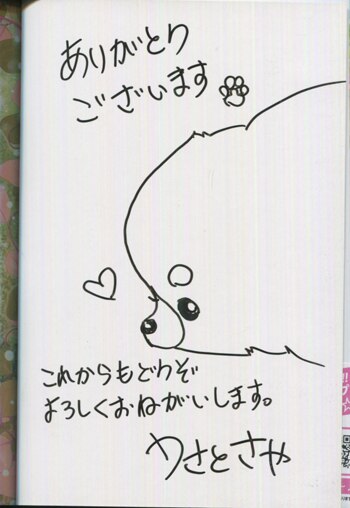 ありがとう
ございます
これからもどうぞ
よろしくおねがいします。